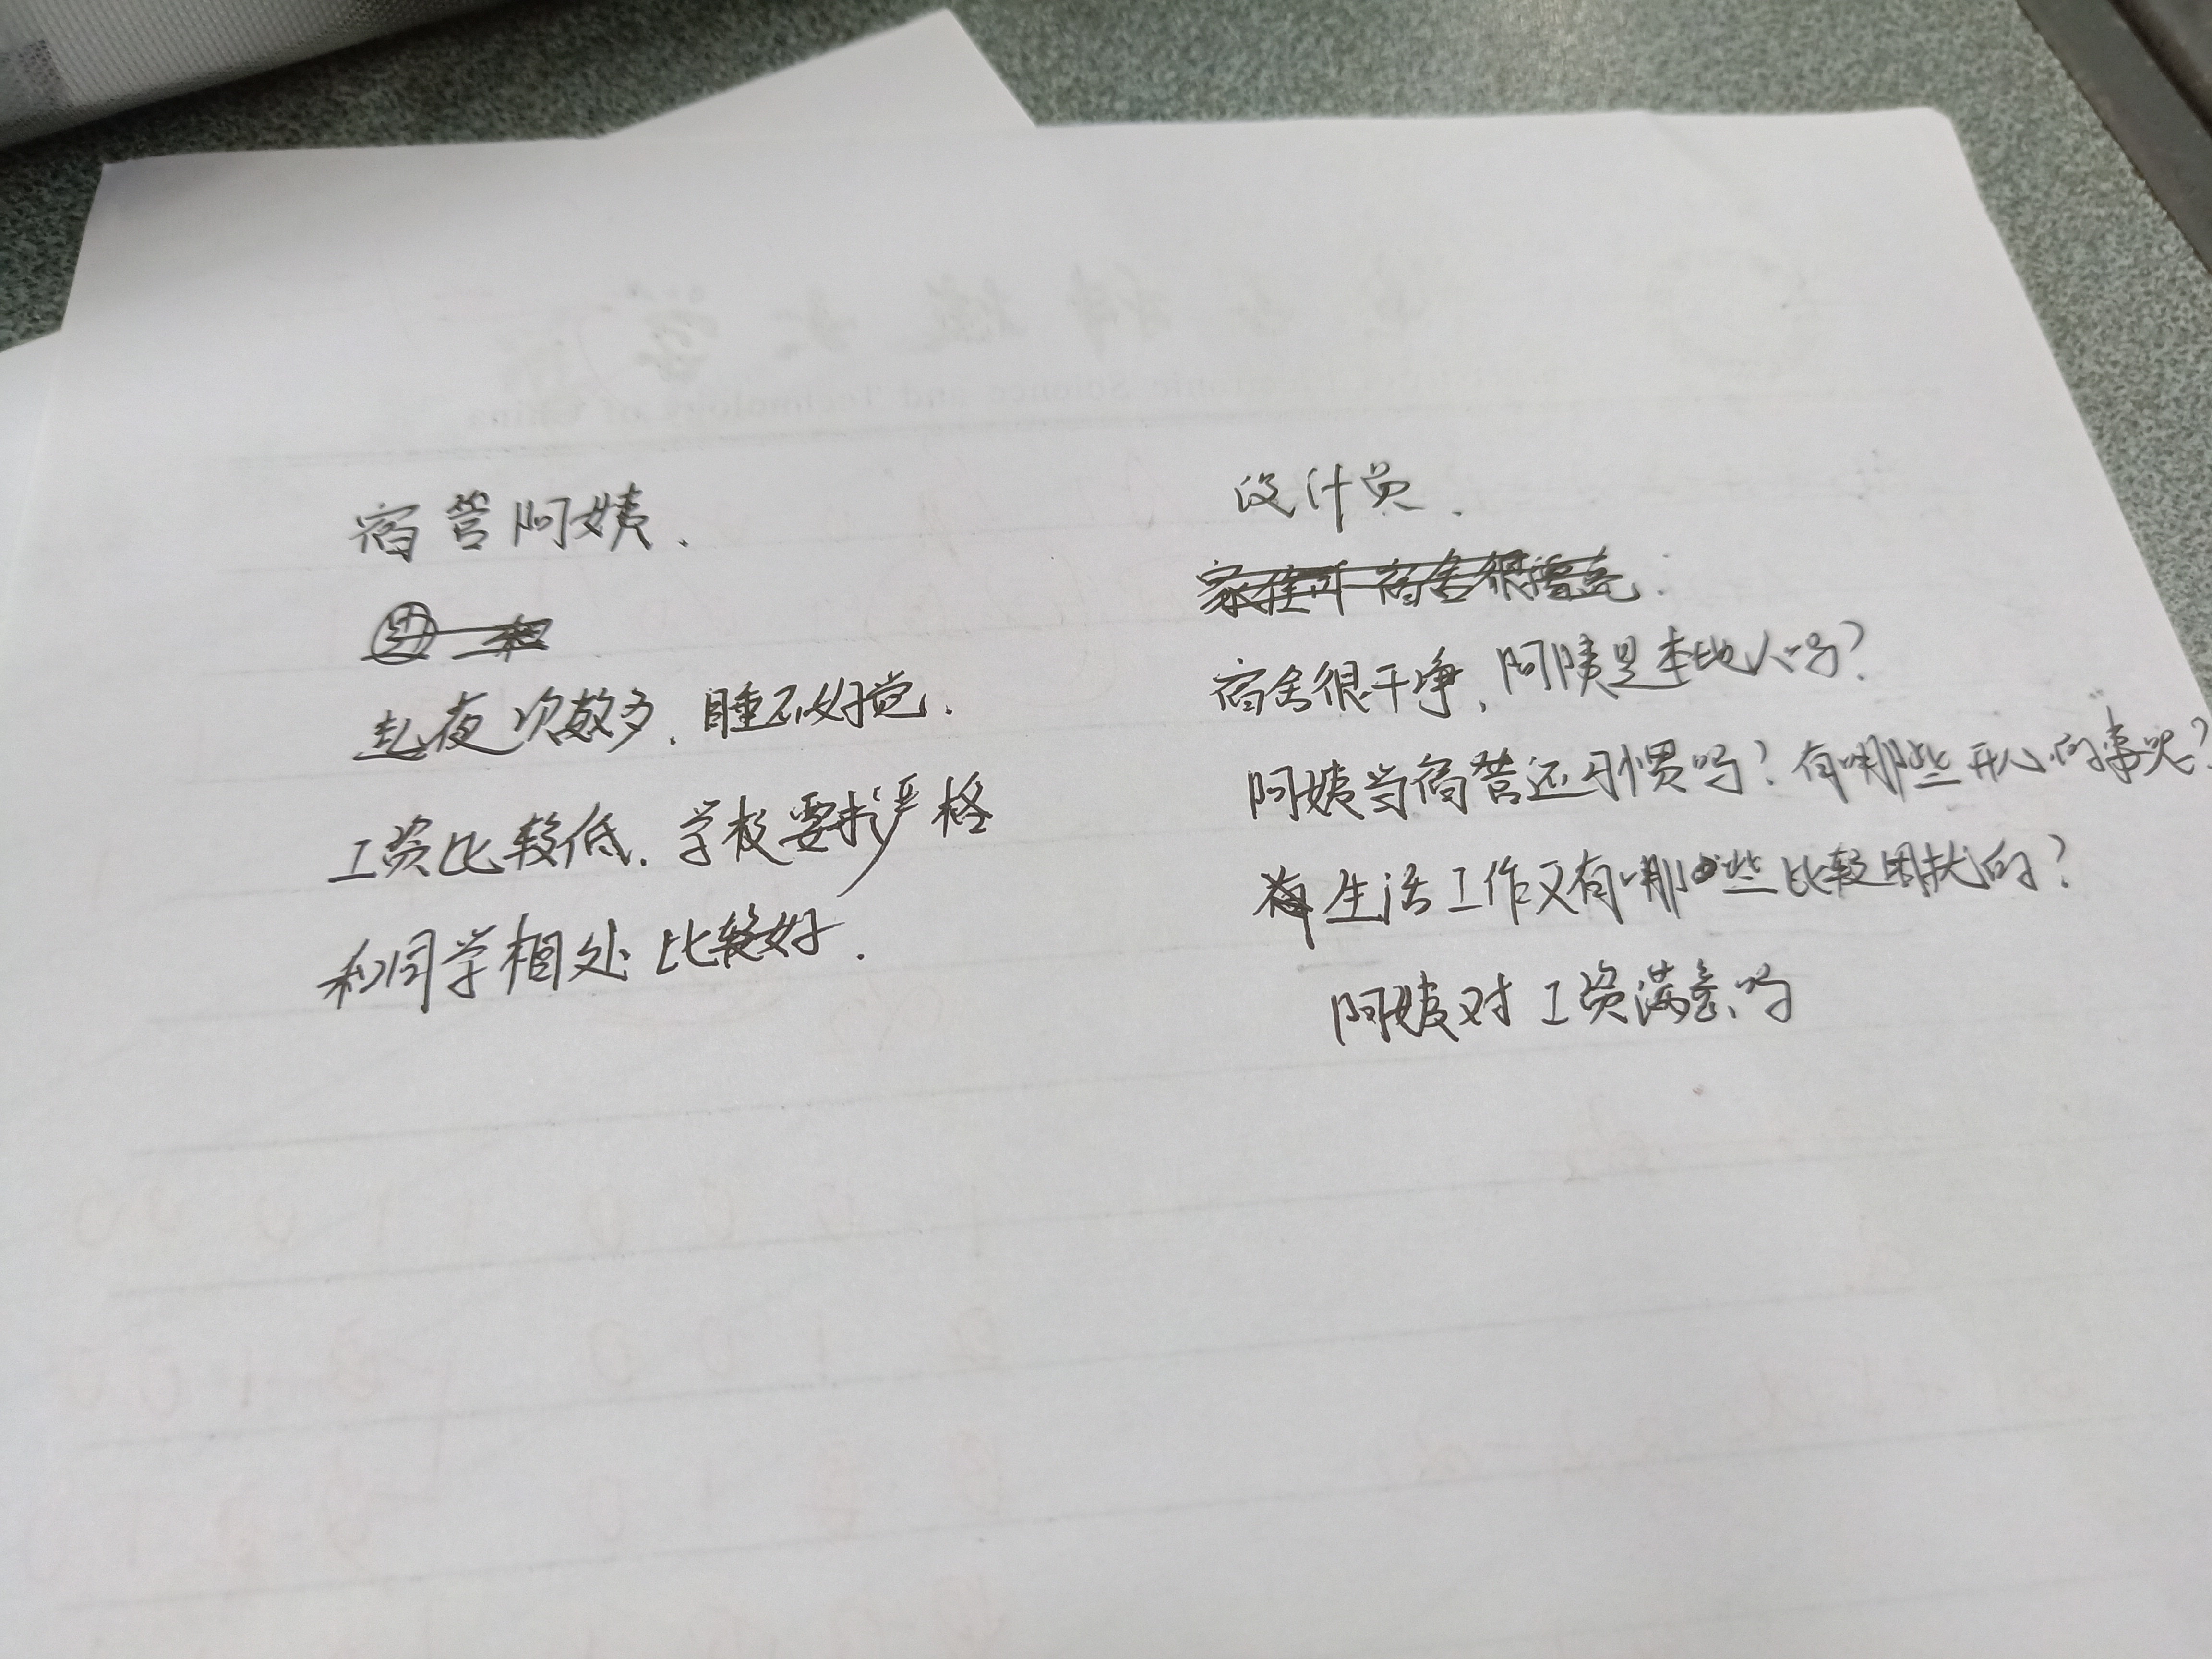 宿管阿姨.
起夜次数多.睡不好觉.
工资比较低.学校要求严格
和同学相处比较好.
设计员.
宿舍很干净,阿姨是本地人吗?
阿姨当宿管还习惯吗?有哪些开心的事呢?
生活工作又有哪些比较困扰的?
阿姨对工资满意吗